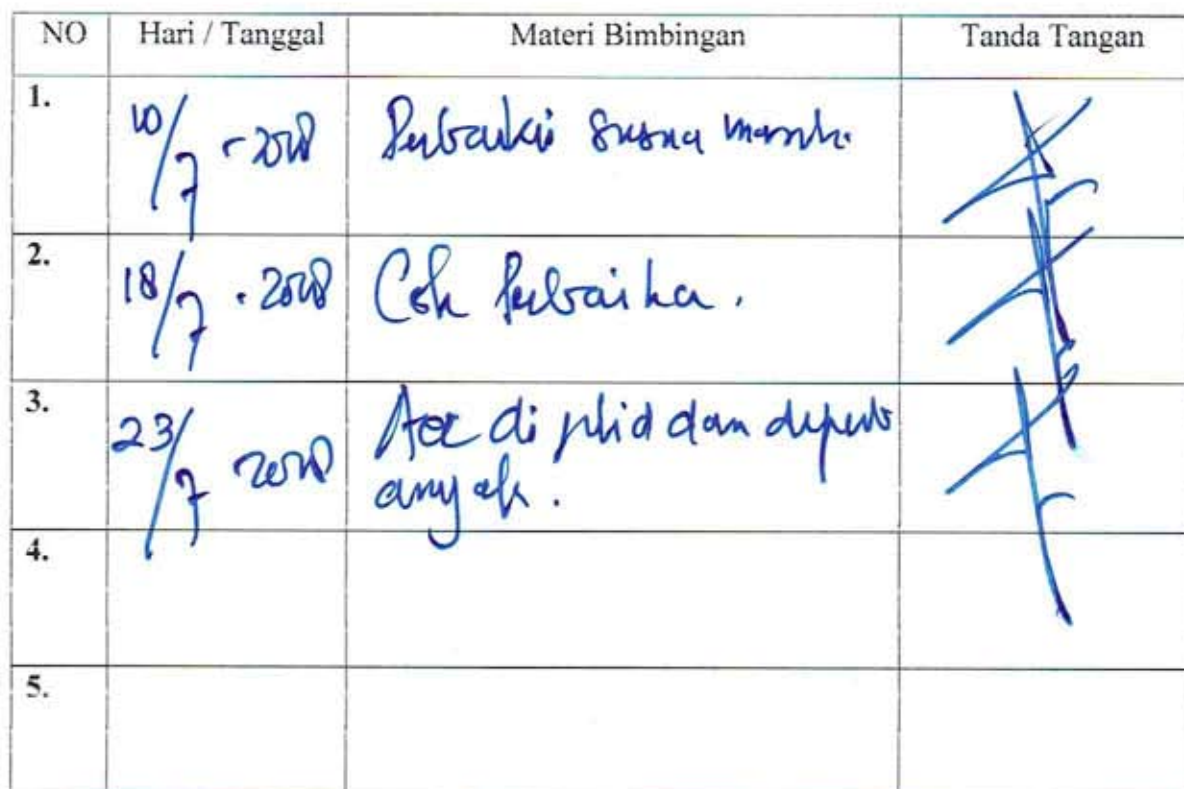 NO Hari / Tanggal Materi Bimbingan Tanda Tangan
1. 10/7 - 2018 Perbaiki
2. 18/7 - 2018 Cek Perbaika.
3. 23/7 2018 Acc di jilid dan diperb
anyak.
4.
5.